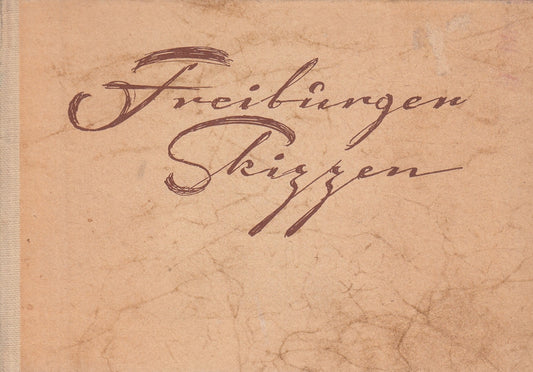 Freiburger
Skizzen